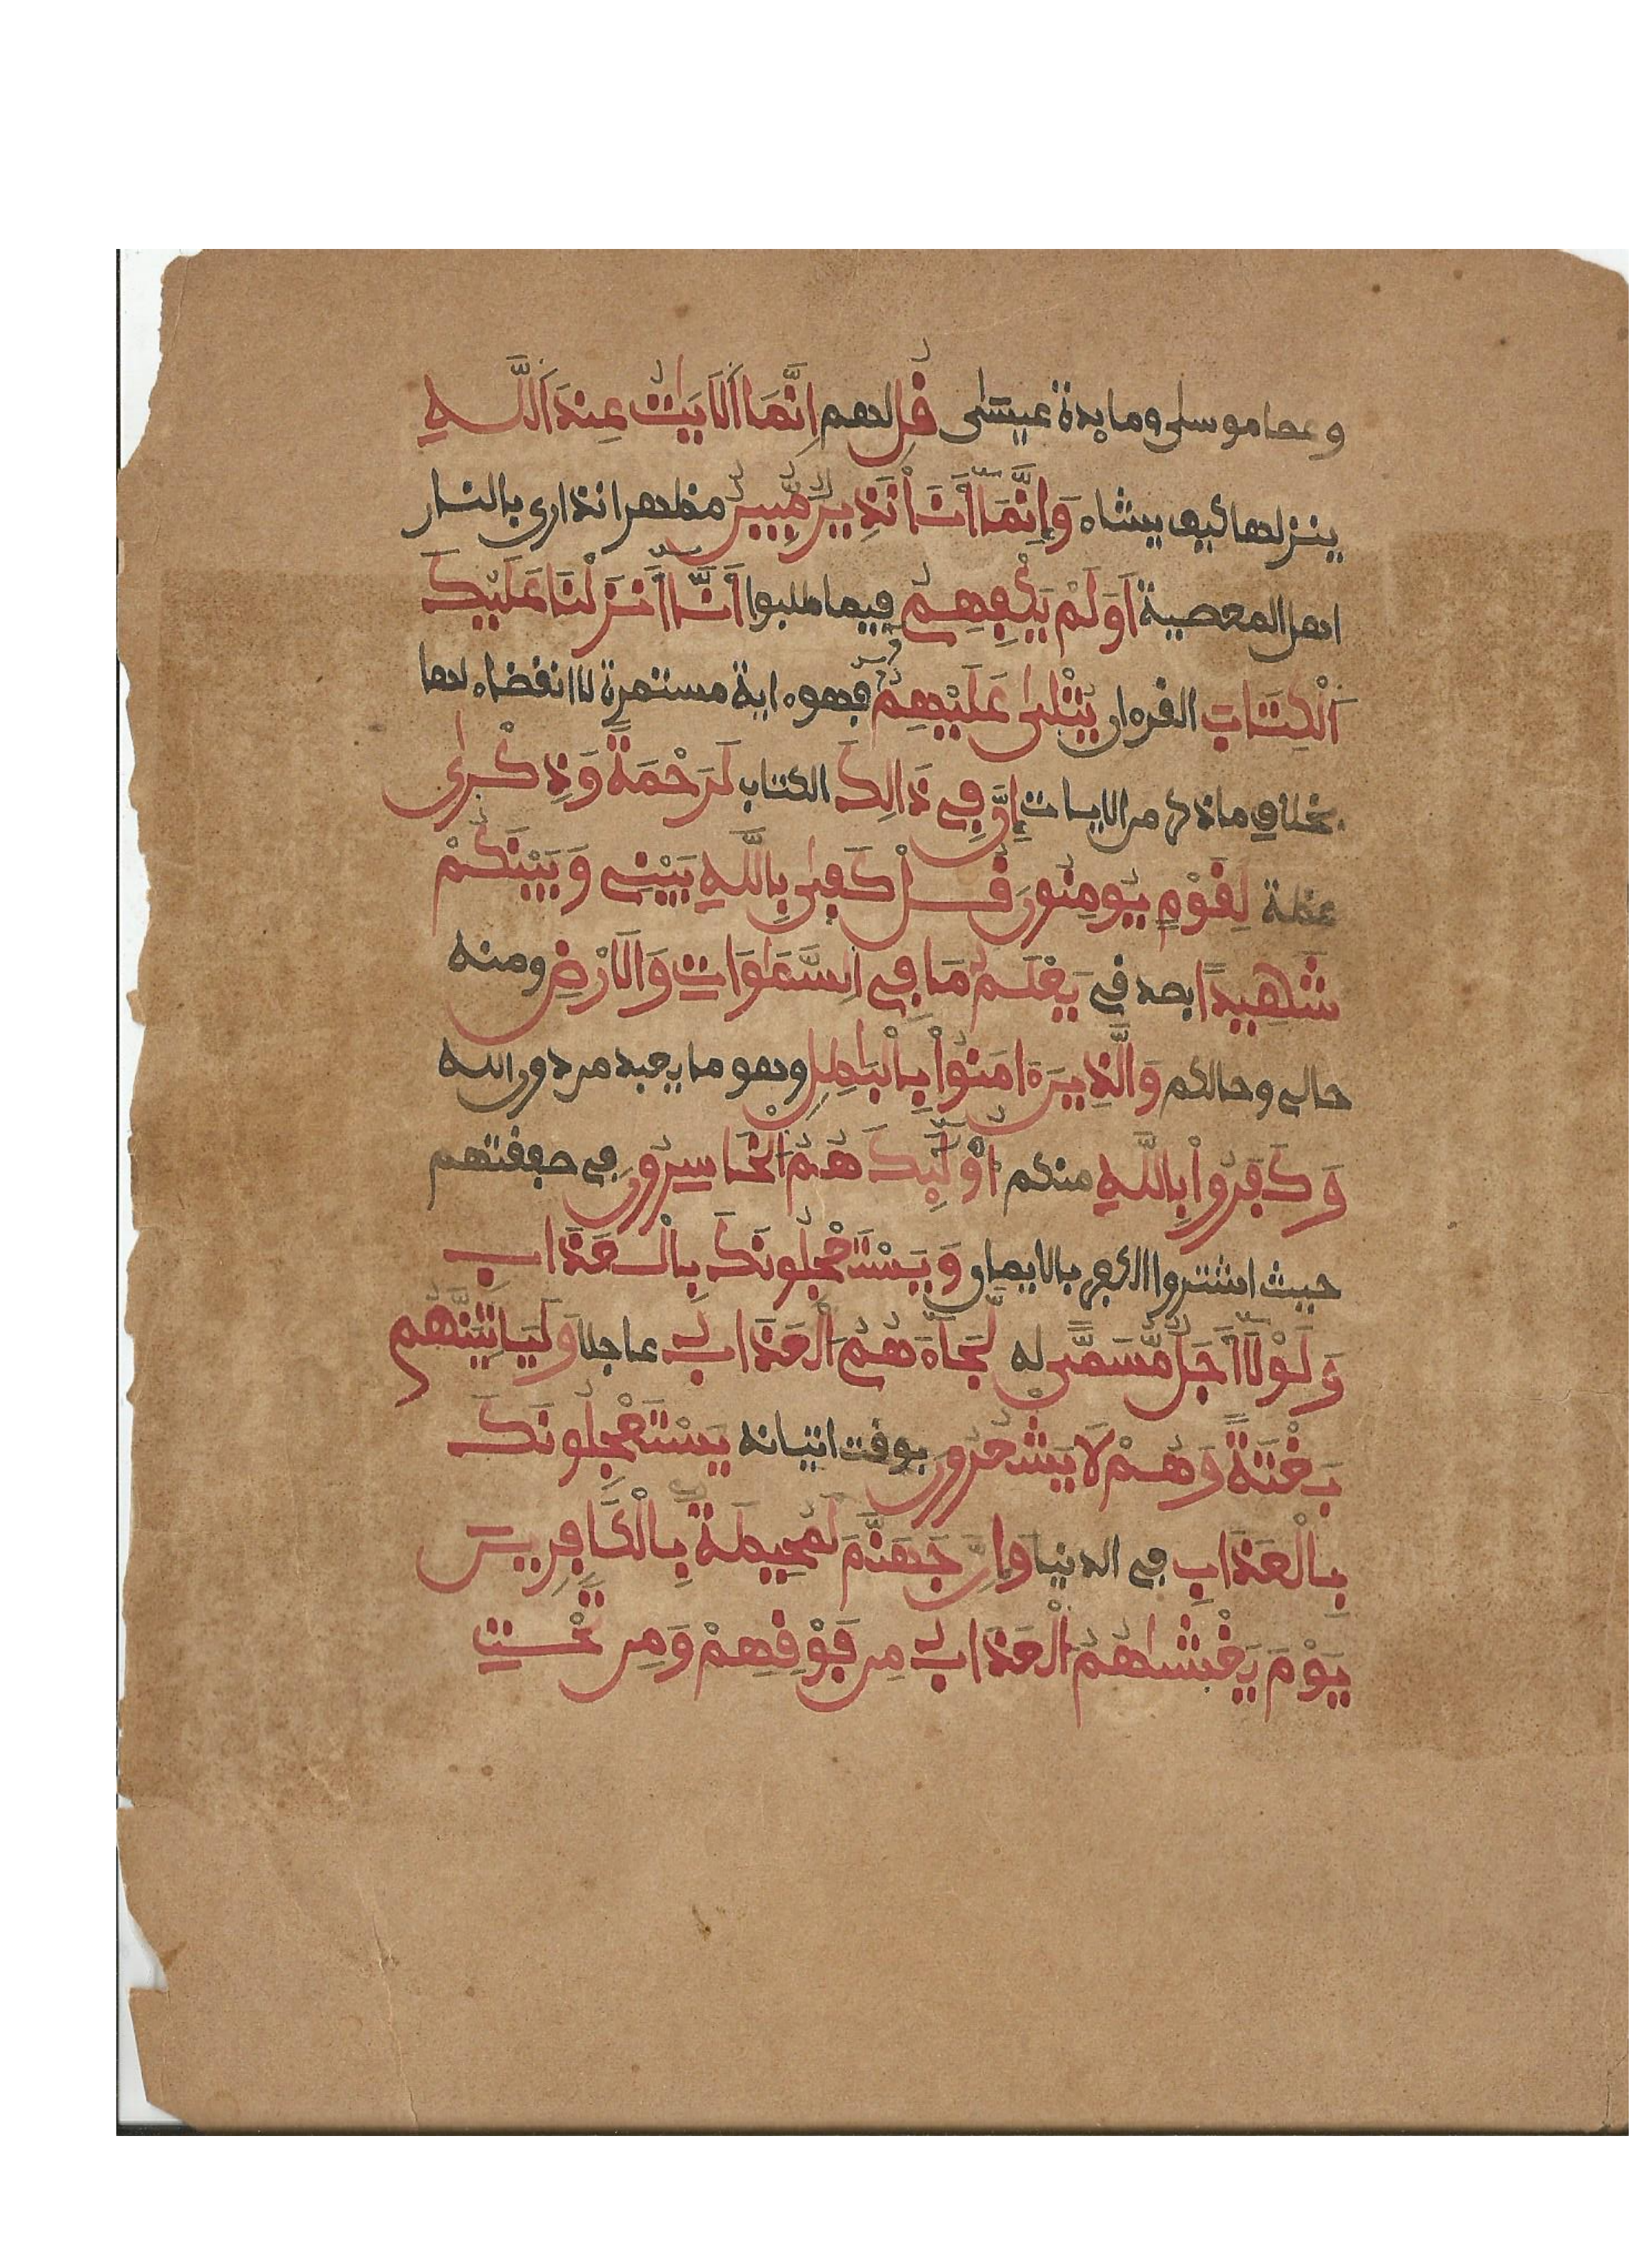 وعصا موسى ومايدة عيسى قُل لهم إِنَّمَا اَلَايَٰتُ عِندَ اَللَّهِ
ينزلها كيف يشاء وَإِنَّمَآ أَنَا نَذِيرٌ مُّبِينٌ مظهر انذارى بالنار
اهل المعصية اَوَلَمْ يَكْفِهِمُۥٓ فيما طلبوا أَنَّآ أَنزَلْنَا عَلَيْكَ
اَلْكِتَابَ القرءان يُتْلَىٰ عَلَيْهِمُۥٓ فهوء اية مستمرة لا انقضاء لها
بخلاف ما ذكر من الايات إِنَّ فِى ذَالِكَ الكتاب لَرَحْمَةً وَذِكْرَىٰ
عظة لِقَوْمٍ يُومِنُونَ قُلْ كَفَىٰ بِاللَّهِ بَيْنِى وَبَيْنَكُمْ
شَهِيدًا بصدقى يَعْلَمُ مَا فِى اِلسَّمَٰوَاتِ وَالَارْضِ ومنه
حالى وحالكم وَالَّذِينَ ءَامَنُواْ بِالْبَٰطِلِ وهو ما يعبد من دون الله
وَكَفَرُواْ بِاللَّهِ منكم أُوْلَٰٓئِكَ هُمُ اَلْخَاسِرُونَ فى صفقتهم
حيث اشتروا الكفر بالايمان وَيَسْتَعْجِلُونَكَ بِالْعَذَابِ
وَلَوْلَآ أَجَلٌ مُّسَمًّى له لَّجَآءَهُمُ اَلْعَذَابُ عاجلا وَلَيَاتِيَنَّهُم
بَغْتَةً وَهُمْ لَا يَشْعُرُونَ بوقت اتيانه يَسْتَعْجِلُونَكَ
بِالْعَذَابِ فى الدنيا وَإِنَّ جَهَنَّمَ لَمُحِيطَةٌ بِالْكَافِرِينَ
يَوْمَ يَغْشَىٰهُمُ اَلْعَذَابُ مِن فَوْقِهِمْ وَمِن تَحْتِ